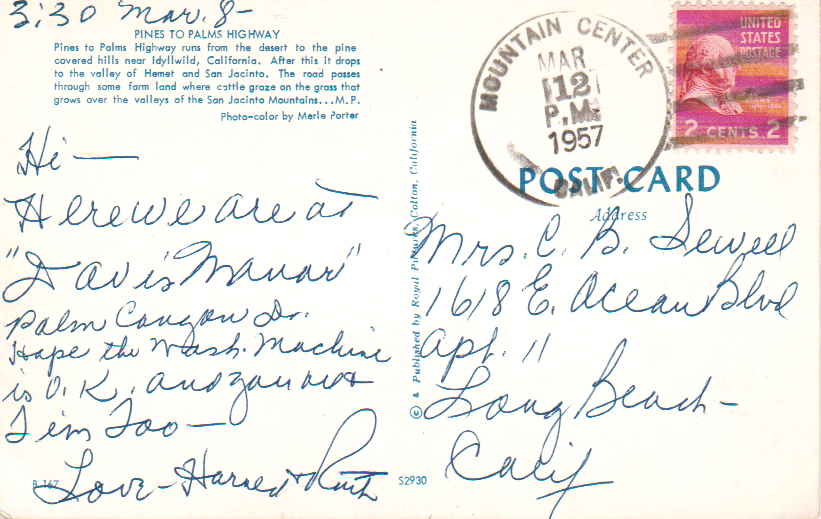 3:30 Mar. 8-
PINES TO PALMS HIGHWAY
Pines to Palms Highway runs from the desert to the pine
covered hills near Idyllwild, California. After this it drops
to the valley of Hemet and San Jacinto. The road passes
through some farm land where cattle graze on the grass that
grows over the valleys of the San Jacinto Mountains...M.P.
Photo-color by Merle Porter
Hi —
Here we are at
"Davis Manor"
Palm Canyon Dr.
Hope the Wash. Machine
is O.K. and you and
Jim Too —
Love - Harned & Ruth
B-167
S2930
© & Published by Royal Pictures, Colton, California
MOUNTAIN CENTER
MAR
12
P.M.
1957
CALIF.
UNITED
STATES
POSTAGE
2 CENTS 2
POST CARD
Address
Mrs. C. B. Sewell
1618 E. Ocean Blvd
Apt. 11
Long Beach -
Calif